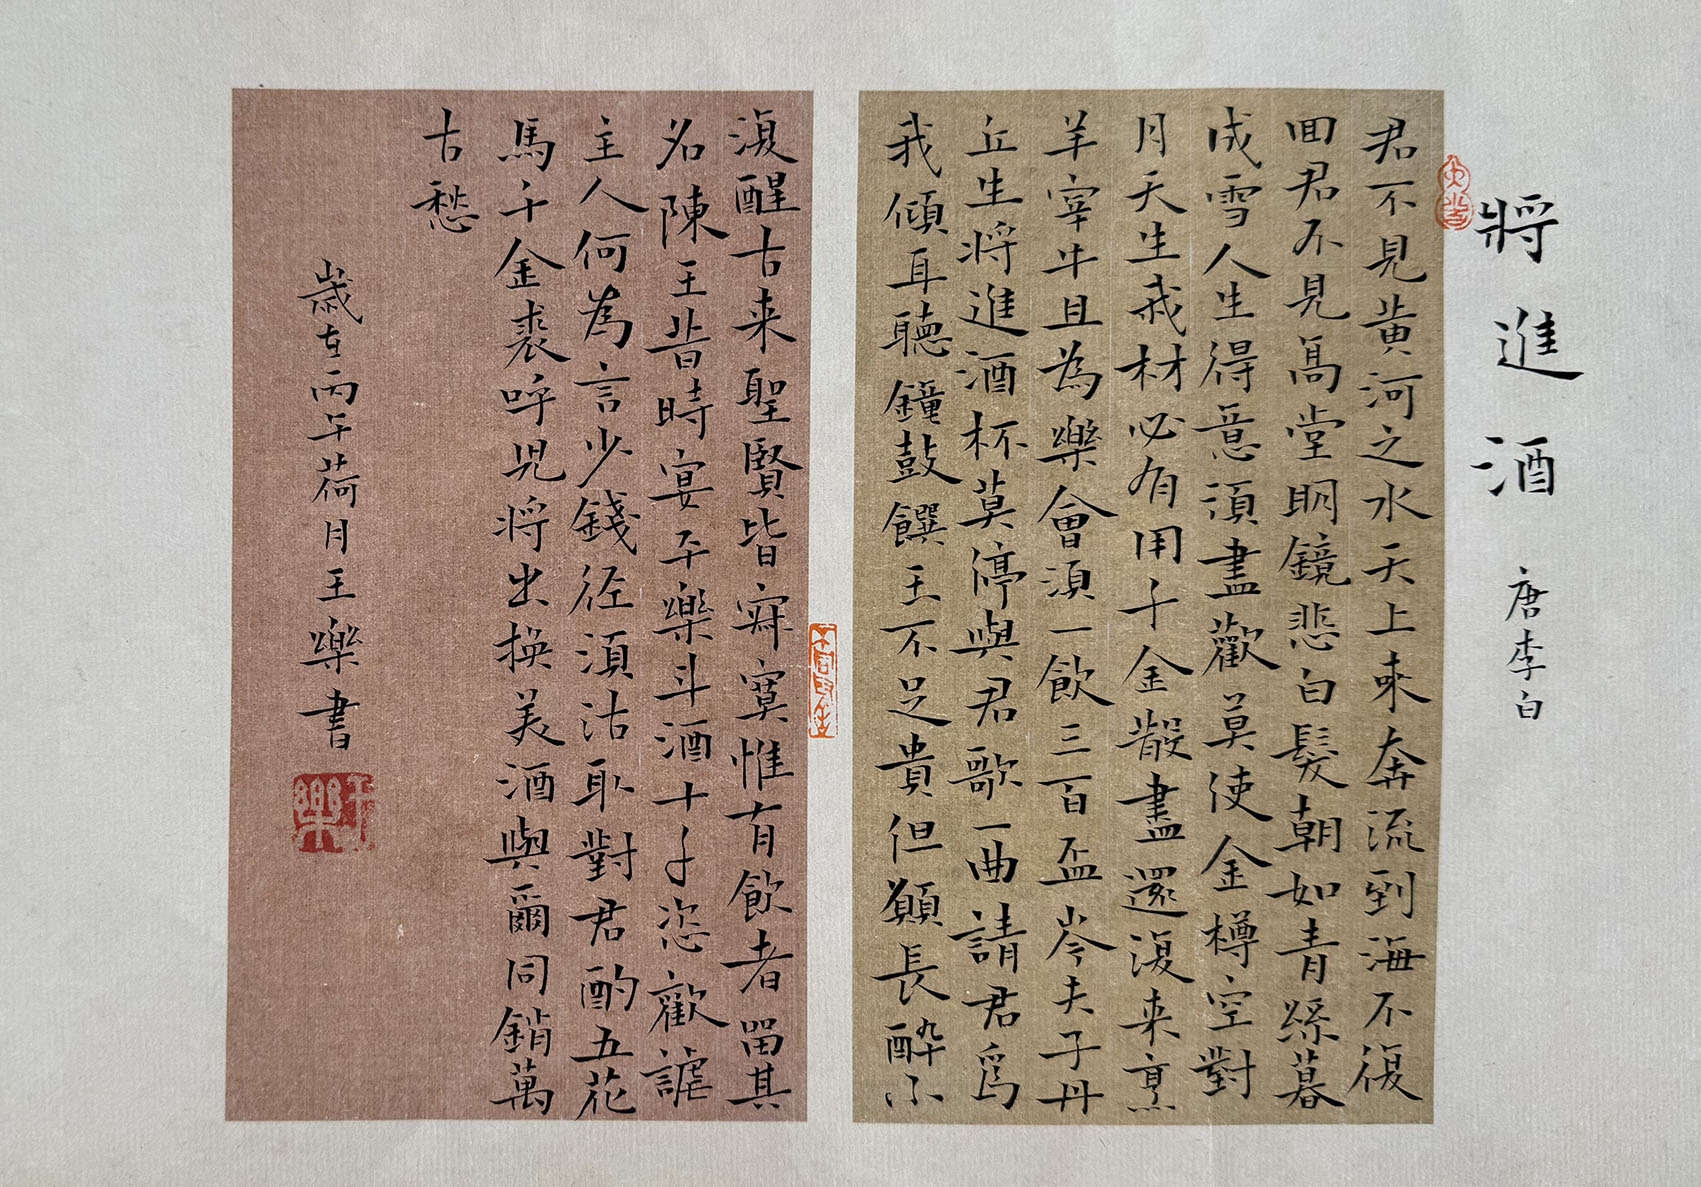 將進酒 唐李白
君不見黄河之水天上来奔流到海不復
回君不見髙堂明鏡悲白髮朝如青絲暮
成雪人生得意湏盡歡莫使金樽空對
月天生我材必有用千金散盡還復来烹
羊宰牛且為樂會湏一飲三百盃岑夫子丹
丘生将進酒杯莫停與君歌一曲請君爲
我傾耳聽鐘鼓饌玉不足貴但願長醉不
復醒古来聖賢皆寂寞惟有飲者留其
名陳王昔時宴平樂斗酒十千恣歡謔
主人何為言少錢径湏沽取對君酌五花
馬千金裘呼児将出換美酒與爾同銷萬
古愁
歲在丙午荷月王樂書
王樂